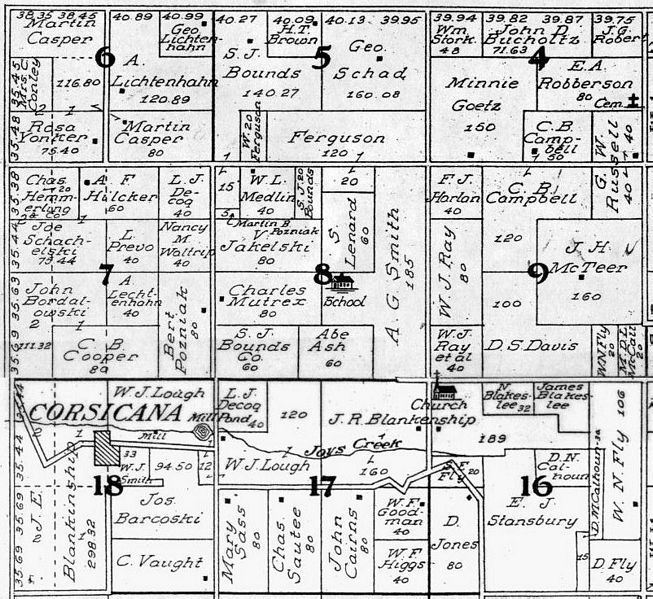 38.35 38.45
Martin
Casper
40.89
40.99
Geo.
Lichten-
hahn
6
A.
Lichtenhahn
120.89
35.45
Mrs. C.
Conley
116.80
2 1
35.48
Rosa
75.40
Martin
Casper
80
40.27
40.09
H.T.
Brown
40.13
39.95
S. J.
Bounds
140.27
5
Geo.
Schad
160.08
W. 20
Ferguson
Ferguson
120
39.94
Wm
Stork
48
39.82
39.87
John D.
Bucholtz
71.63
39.75
J.G.
Robert
4
E. A.
Robberson
80
Cem.
Minnie
Goetz
150
C. B.
Camp-
bell
50
W.
G. Russell
40
40
35.38
Chas.
Hemm-
erling
A. F.
Hilcker
60
L. J.
De-
coq
40
Joe
Schach-
elski
79.44
L.
Prevo
40
Nancy
M
Waltrip
40
7
35.63
John
Bordal-
owski
2 1
A
Licht-
enhahn
40
Bert
Pozniak
80
35.69
111.32
C. B.
Cooper
80
15
W. L.
Medlin
40
S.J. 20
Bounds
20
S.
Lenard
60
Martin B
V Pozniak
Jakelski
80
8
School
A. G. Smith
185
Charles
Mutrex
80
S. J.
Bounds
Co.
60
Abe
Ash
60
F. J.
Harlan
40
C. B.
Campbell
120
W. J. Ray
80
9
J. H.
McTeer
160
100
W. J.
Ray
et al
40
D. S. Davis
W N Fly
20
M.D.L.
McCall
20
W. J. Lough
CORSICANA
Mill
Pond
Mill
L. J.
Decoq
40
120
J. R. Blankenship
Church
N
Blakes-
lee 32
James
Blakes-
lee
189
106
35.44
33
W. J.
Smith
94.50
12
W. J. Lough
Joys Creek
160
S. F. 20
Fly
D. N.
Cal-
houn
D. McCalhoun
W. N. Fly
18
17
16
35.69
J. E.
Blankinship
298.32
Jos.
Barcoski
Mary
Sass
80
Chas.
Sautee
80
John
Cairns
80
W. F.
Good-
man
40
D.
Jones
80
E. J.
Stansbury
35.69
C. Vaught
W F
Higgs
40
15
D. Fly
40